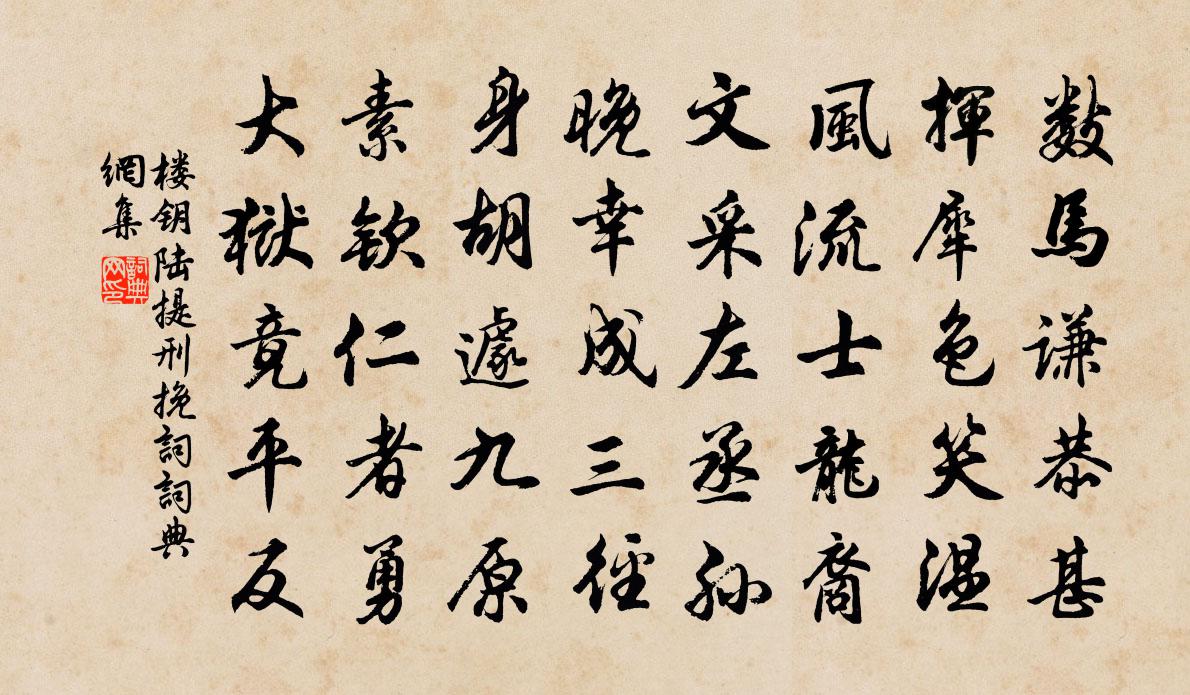 數馬謙恭甚
揮犀色笑温
風流士龍裔
文采左丞孙
晚幸成三徑
身胡遽九原
素欽仁者勇
大獄竟平反
楼钥陆提刑挽詞詞典
網集
詞典
网印